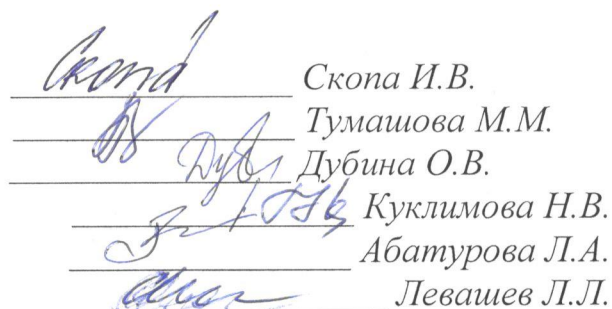 Скопа Скопа И.В.
Тумашова М.М.
Дуб Дубина О.В.
Куклимова Н.В.
Абатурова Л.А.
Левашев Л.Л.